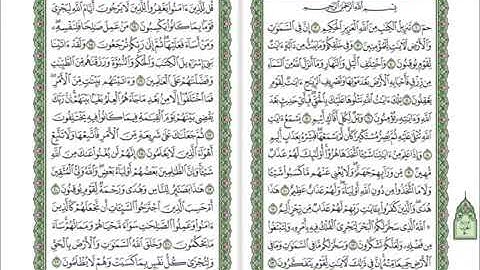 بِسْمِ ٱللَّهِ ٱلرَّحْمَٰنِ ٱلرَّحِيمِ
حمٓ ١ تَنزِيلُ ٱلْكِتَٰبِ مِنَ ٱللَّهِ ٱلْعَزِيزِ ٱلْحَكِيمِ ٢ إِنَّ فِى ٱلسَّمَٰوَٰتِ
وَٱلْأَرْضِ لَءَايَٰتٍ لِّلْمُؤْمِنِينَ ٣ وَفِى خَلْقِكُمْ وَمَا يَبُثُّ مِن دَآبَّةٍ ءَايَٰتٌ
لِّقَوْمٍ يُوقِنُونَ ٤ وَٱخْتِلَٰفِ ٱلَّيْلِ وَٱلنَّهَارِ وَمَآ أَنزَلَ ٱللَّهُ مِنَ ٱلسَّمَآءِ
مِن رِّزْقٍ فَأَحْيَا بِهِ ٱلْأَرْضَ بَعْدَ مَوْتِهَا وَتَصْرِيفِ ٱلرِّيَٰحِ ءَايَٰتٌ لِّقَوْمٍ
يَعْقِلُونَ ٥ تِلْكَ ءَايَٰتُ ٱللَّهِ نَتْلُوهَا عَلَيْكَ بِٱلْحَقِّ فَبِأَىِّ حَدِيثٍۭ بَعْدَ
ٱللَّهِ وَءَايَٰتِهِ يُؤْمِنُونَ ٦ وَيْلٌ لِّكُلِّ أَفَّاكٍ أَثِيمٍ ٧ يَسْمَعُ ءَايَٰتِ
ٱللَّهِ تُتْلَىٰ عَلَيْهِ ثُمَّ يُصِرُّ مُسْتَكْبِرًا كَأَن لَّمْ يَسْمَعْهَا فَبَشِّرْهُ بِعَذَابٍ أَلِيمٍ
٨ وَإِذَا عَلِمَ مِنْ ءَايَٰتِنَا شَيْـًٔا ٱتَّخَذَهَا هُزُوًا أُو۟لَٰٓئِكَ لَهُمْ عَذَابٌ
مُّهِينٌ ٩ مِّن وَرَآئِهِمْ جَهَنَّمُ وَلَا يُغْنِى عَنْهُم مَّا كَسَبُوا۟ شَيْـًٔا
وَلَا مَا ٱتَّخَذُوا۟ مِن دُونِ ٱللَّهِ أَوْلِيَآءَ وَلَهُمْ عَذَابٌ عَظِيمٌ ١٠
هَٰذَا هُدًى وَٱلَّذِينَ كَفَرُوا۟ بِـَٔايَٰتِ رَبِّهِمْ لَهُمْ عَذَابٌ مِّن رِّجْزٍ أَلِيمٌ
١١ ٱللَّهُ ٱلَّذِى سَخَّرَ لَكُمُ ٱلْبَحْرَ لِتَجْرِىَ ٱلْفُلْكُ فِيهِ بِأَمْرِهِ وَلِتَبْتَغُوا۟
مِن فَضْلِهِ وَلَعَلَّكُمْ تَشْكُرُونَ ١٢ وَسَخَّرَ لَكُم مَّا فِى ٱلسَّمَٰوَٰتِ
وَمَا فِى ٱلْأَرْضِ جَمِيعًا مِّنْهُ إِنَّ فِى ذَٰلِكَ لَءَايَٰتٍ لِّقَوْمٍ يَتَفَكَّرُونَ ١٣
قُل لِّلَّذِينَ ءَامَنُوا۟ يَغْفِرُوا۟ لِلَّذِينَ لَا يَرْجُونَ أَيَّامَ ٱللَّهِ لِيَجْزِىَ
قَوْمًۢا بِمَا كَانُوا۟ يَكْسِبُونَ ١٤ مَنْ عَمِلَ صَٰلِحًا فَلِنَفْسِهِ
وَمَنْ أَسَآءَ فَعَلَيْهَا ثُمَّ إِلَىٰ رَبِّكُمْ تُرْجَعُونَ ١٥ وَلَقَدْ ءَاتَيْنَا
بَنِىٓ إِسْرَٰٓءِيلَ ٱلْكِتَٰبَ وَٱلْحُكْمَ وَٱلنُّبُوَّةَ وَرَزَقْنَٰهُم مِّنَ ٱلطَّيِّبَٰتِ
وَفَضَّلْنَٰهُمْ عَلَى ٱلْعَٰلَمِينَ ١٦ وَءَاتَيْنَٰهُم بَيِّنَٰتٍ مِّنَ ٱلْأَمْرِ
فَمَا ٱخْتَلَفُوٓا۟ إِلَّا مِنۢ بَعْدِ مَا جَآءَهُمُ ٱلْعِلْمُ بَغْيًۢا بَيْنَهُمْ إِنَّ رَبَّكَ
يَقْضِى بَيْنَهُمْ يَوْمَ ٱلْقِيَٰمَةِ فِيمَا كَانُوا۟ فِيهِ يَخْتَلِفُونَ ١٧
ثُمَّ جَعَلْنَٰكَ عَلَىٰ شَرِيعَةٍ مِّنَ ٱلْأَمْرِ فَٱتَّبِعْهَا وَلَا تَتَّبِعْ
أَهْوَآءَ ٱلَّذِينَ لَا يَعْلَمُونَ ١٨ إِنَّهُمْ لَن يُغْنُوا۟ عَنكَ مِنَ ٱللَّهِ
شَيْـًٔا وَإِنَّ ٱلظَّٰلِمِينَ بَعْضُهُمْ أَوْلِيَآءُ بَعْضٍ وَٱللَّهُ وَلِىُّ ٱلْمُتَّقِينَ
١٩ هَٰذَا بَصَٰٓئِرُ لِلنَّاسِ وَهُدًى وَرَحْمَةٌ لِّقَوْمٍ يُوقِنُونَ ٢٠
أَمْ حَسِبَ ٱلَّذِينَ ٱجْتَرَحُوا۟ ٱلسَّيِّـَٔاتِ أَن نَّجْعَلَهُمْ كَٱلَّذِينَ
ءَامَنُوا۟ وَعَمِلُوا۟ ٱلصَّٰلِحَٰتِ سَوَآءً مَّحْيَاهُمْ وَمَمَاتُهُمْ سَآءَ
مَا يَحْكُمُونَ ٢١ وَخَلَقَ ٱللَّهُ ٱلسَّمَٰوَٰتِ وَٱلْأَرْضَ بِٱلْحَقِّ
وَلِتُجْزَىٰ كُلُّ نَفْسٍۭ بِمَا كَسَبَتْ وَهُمْ لَا يُظْلَمُونَ ٢٢